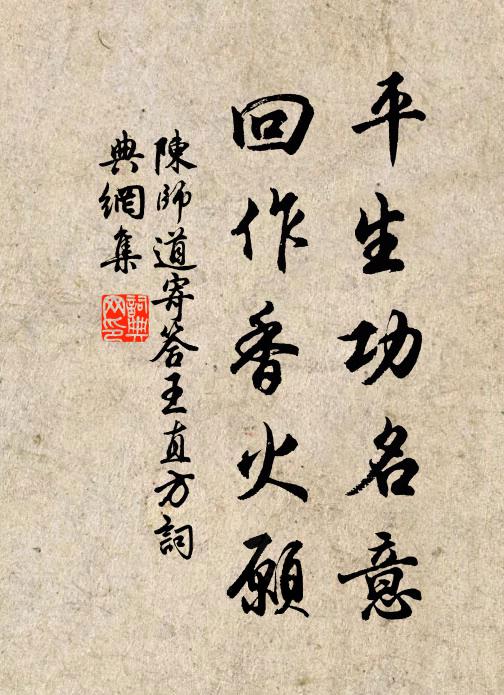 平生功名意
回作香火願
陳師道寄答王直方詞
典網集
詞典
网印